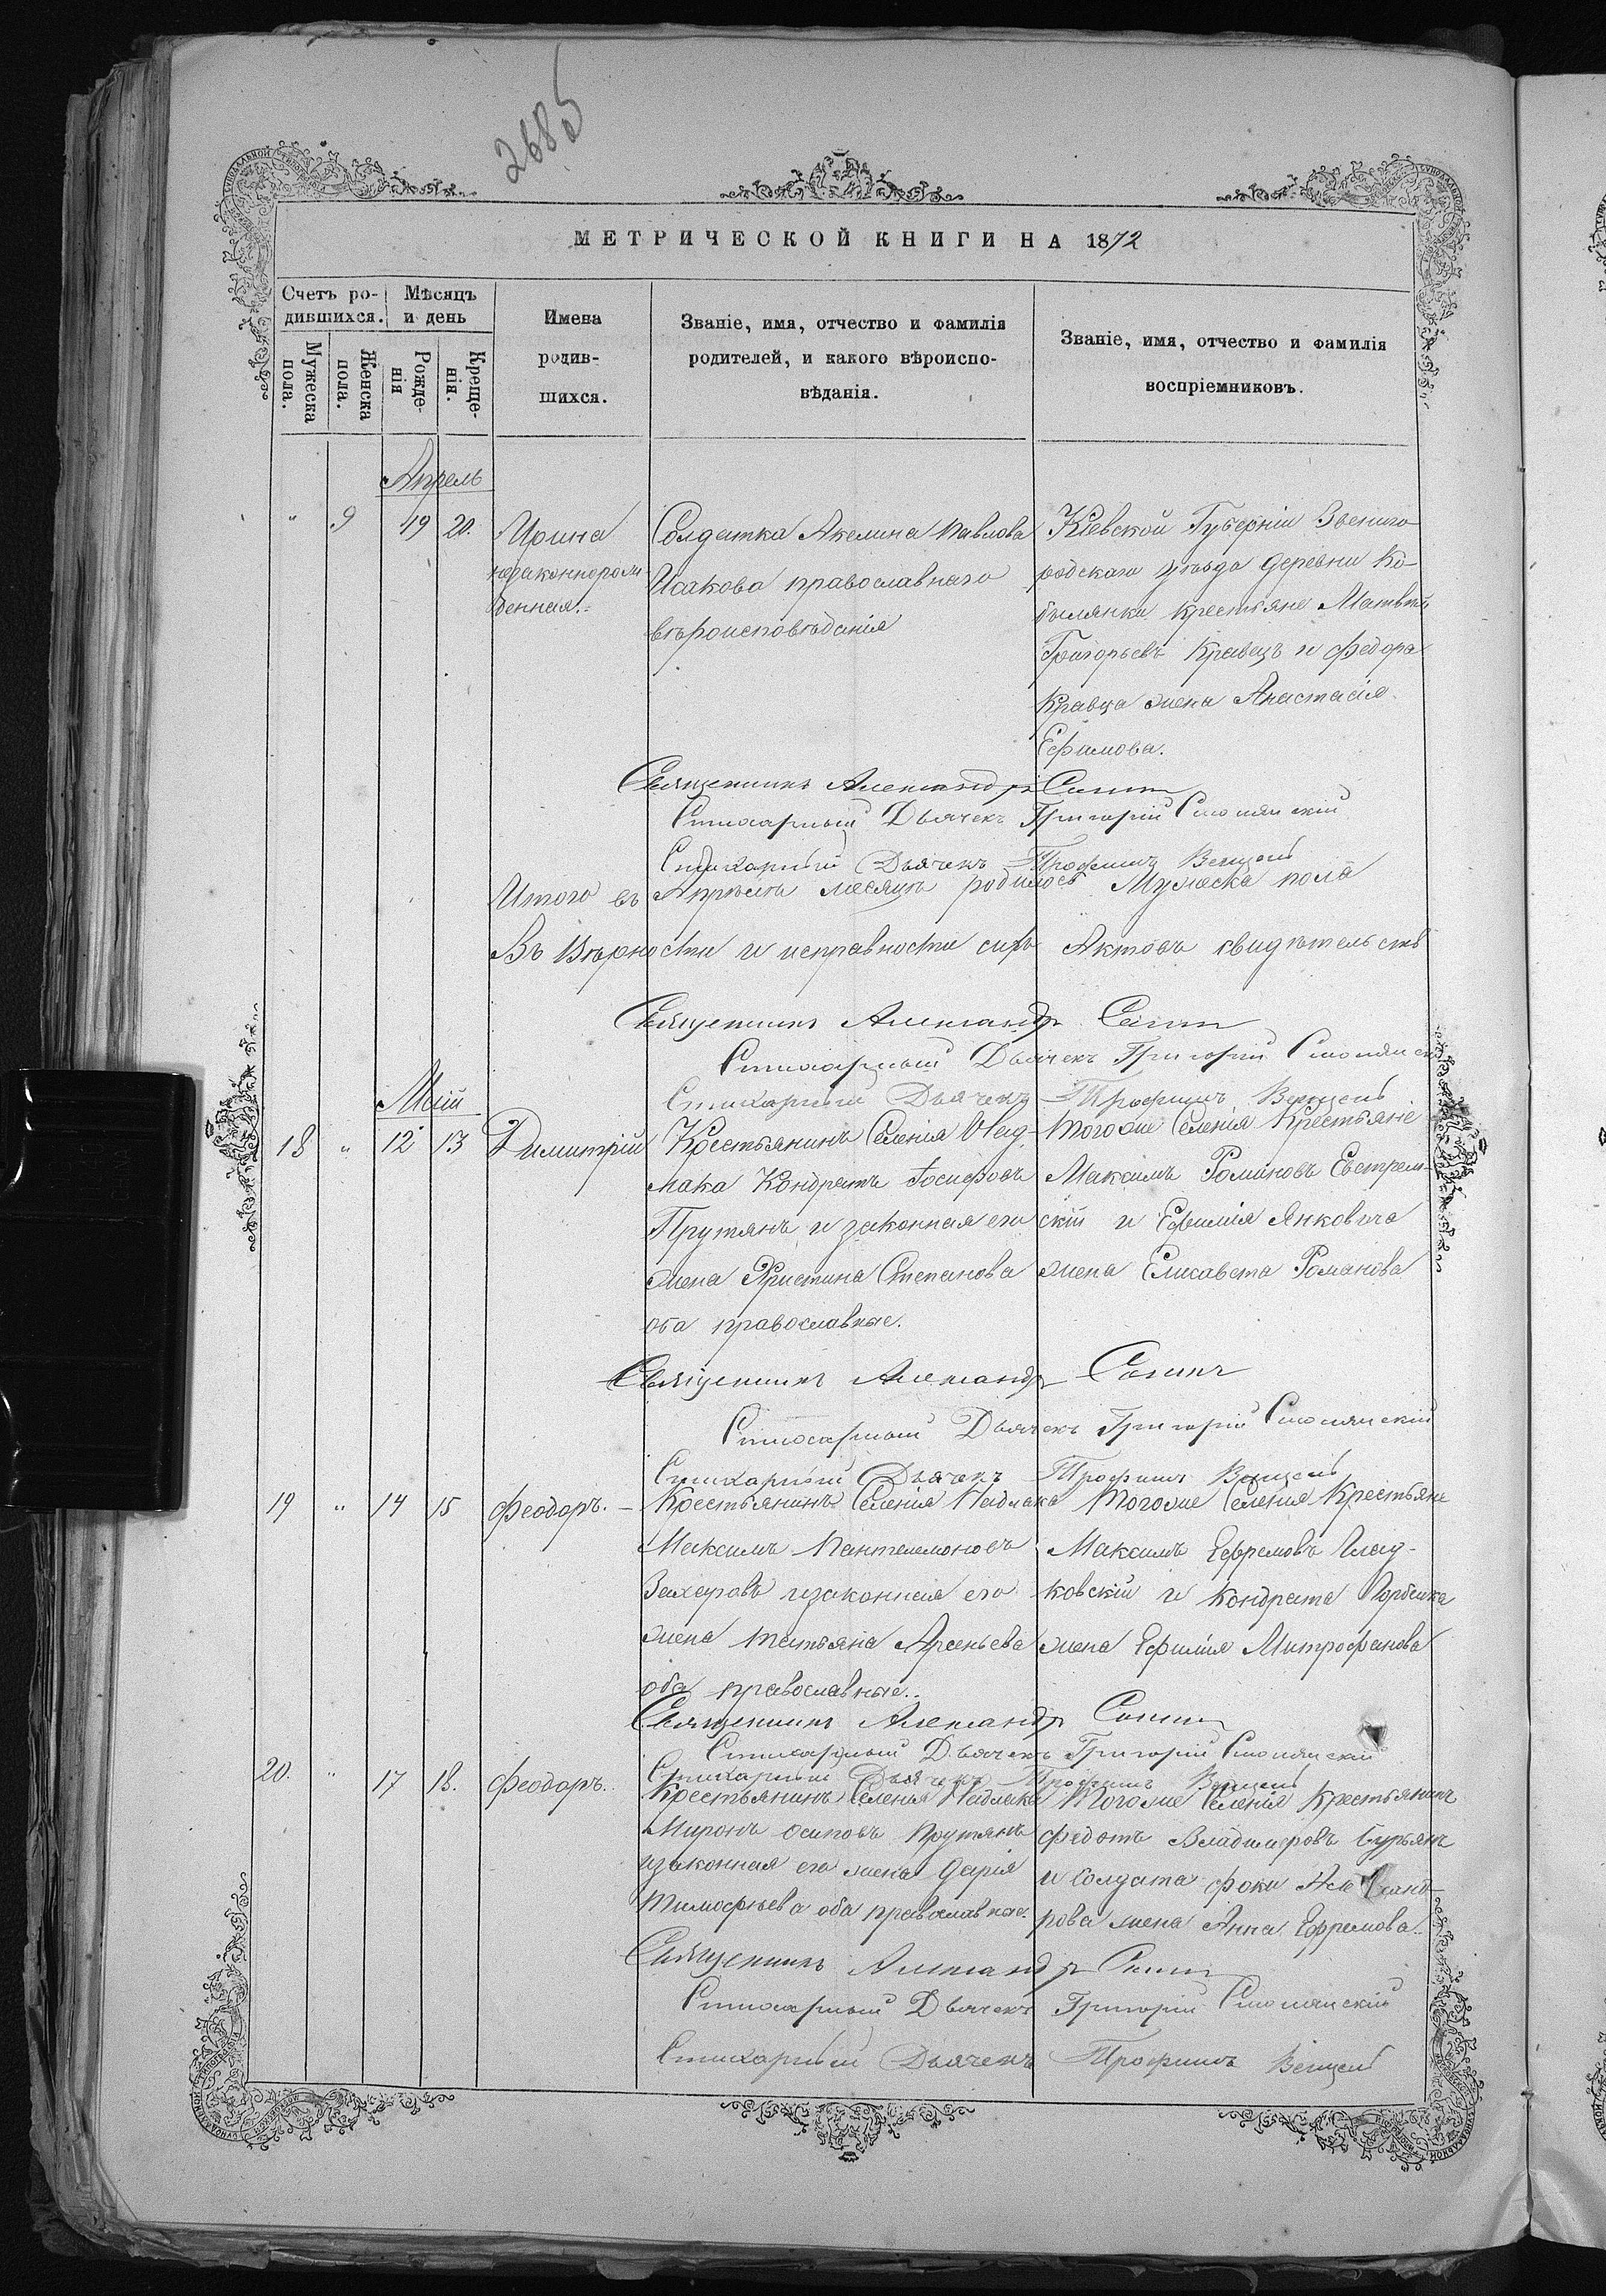 2685
МЕТРИЧЕСКОЙ КНИГИ НА 1872
Счетъ ро-
дившихся.
Мѣсяцъ
и день
Мужеска
пола.
Женска
пола.
Рожде-
нія
Креще-
нія.
Имена
родив-
шихся.
Званіе, имя, отчество и фамилія
родителей, и какого вѣроиспо-
вѣданія.
Званіе, имя, отчество и фамилія
воспріемниковъ.
Апрель
" 9 19 20.
Ирина
незаконнорож-
денная.
Солдатка Акелина Павлова
Исакова православнаго
вѣроисповѣданія
Кіевской Губерніи Звениго-
родскаго уѣзда деревни Ко-
былянки крестьяне Матвѣй
Григорьевъ Кравецъ и Федора
Кравца жена Анастасія
Ефимова.
Священникъ Александръ
Стихарный Дьячекъ Григорій
Стихарный Дьячекъ Трофимъ
Итого въ Апрѣлѣ месяцѣ родилось Мужеска пола
Въ Вѣрности и исправности сихъ Актовъ свидѣтельств
Священникъ Александръ
Стихарный Дьячекъ Григорій
Стихарный Дьячекъ Трофимъ
Май
18 " 12 13
Димитрій
Крестьянинъ Селенія Над-
лака Кондратъ Іосифовъ
Прутянъ и законная его
жена Христина Степанова
оба православные.
Тогоже Селенія Крестьяне
Максимъ Романовъ Евстрат-
скій и Ефимія Янковича
жена Елисавета Романова
Священникъ Александръ
Стихарный Дьячекъ Григорій
Стихарный Дьячекъ Трофимъ
19 " 14 15
Феодоръ.
Крестьянинъ Селенія Надлака
Максимъ Пантелемоновъ
Захаровъ изаконная его
жена Татьяна Арсеньева
оба православные.
Тогоже Селенія Крестьяне
Максимъ Ефремовъ Глад-
ковскій и Кондрата
жена Ефимія Митрофанова
Священникъ Александръ
Стихарный Дьячекъ Григорій
Стихарный Дьячекъ Трофимъ
20. " 17 18.
Феодоръ.
Крестьянинъ Селенія Надлака
Миронъ Осиповъ Прутянъ
изаконная его жена Дарія
Тимофѣева оба православные.
Тогоже Селенія Крестьянинъ
Федотъ Владимировъ Бурьянъ
и Солдата Фоки Александ-
рова жена Анна Ефремова.
Священникъ Александръ
Стихарный Дьячекъ Григорій
Стихарный Дьячекъ Трофимъ